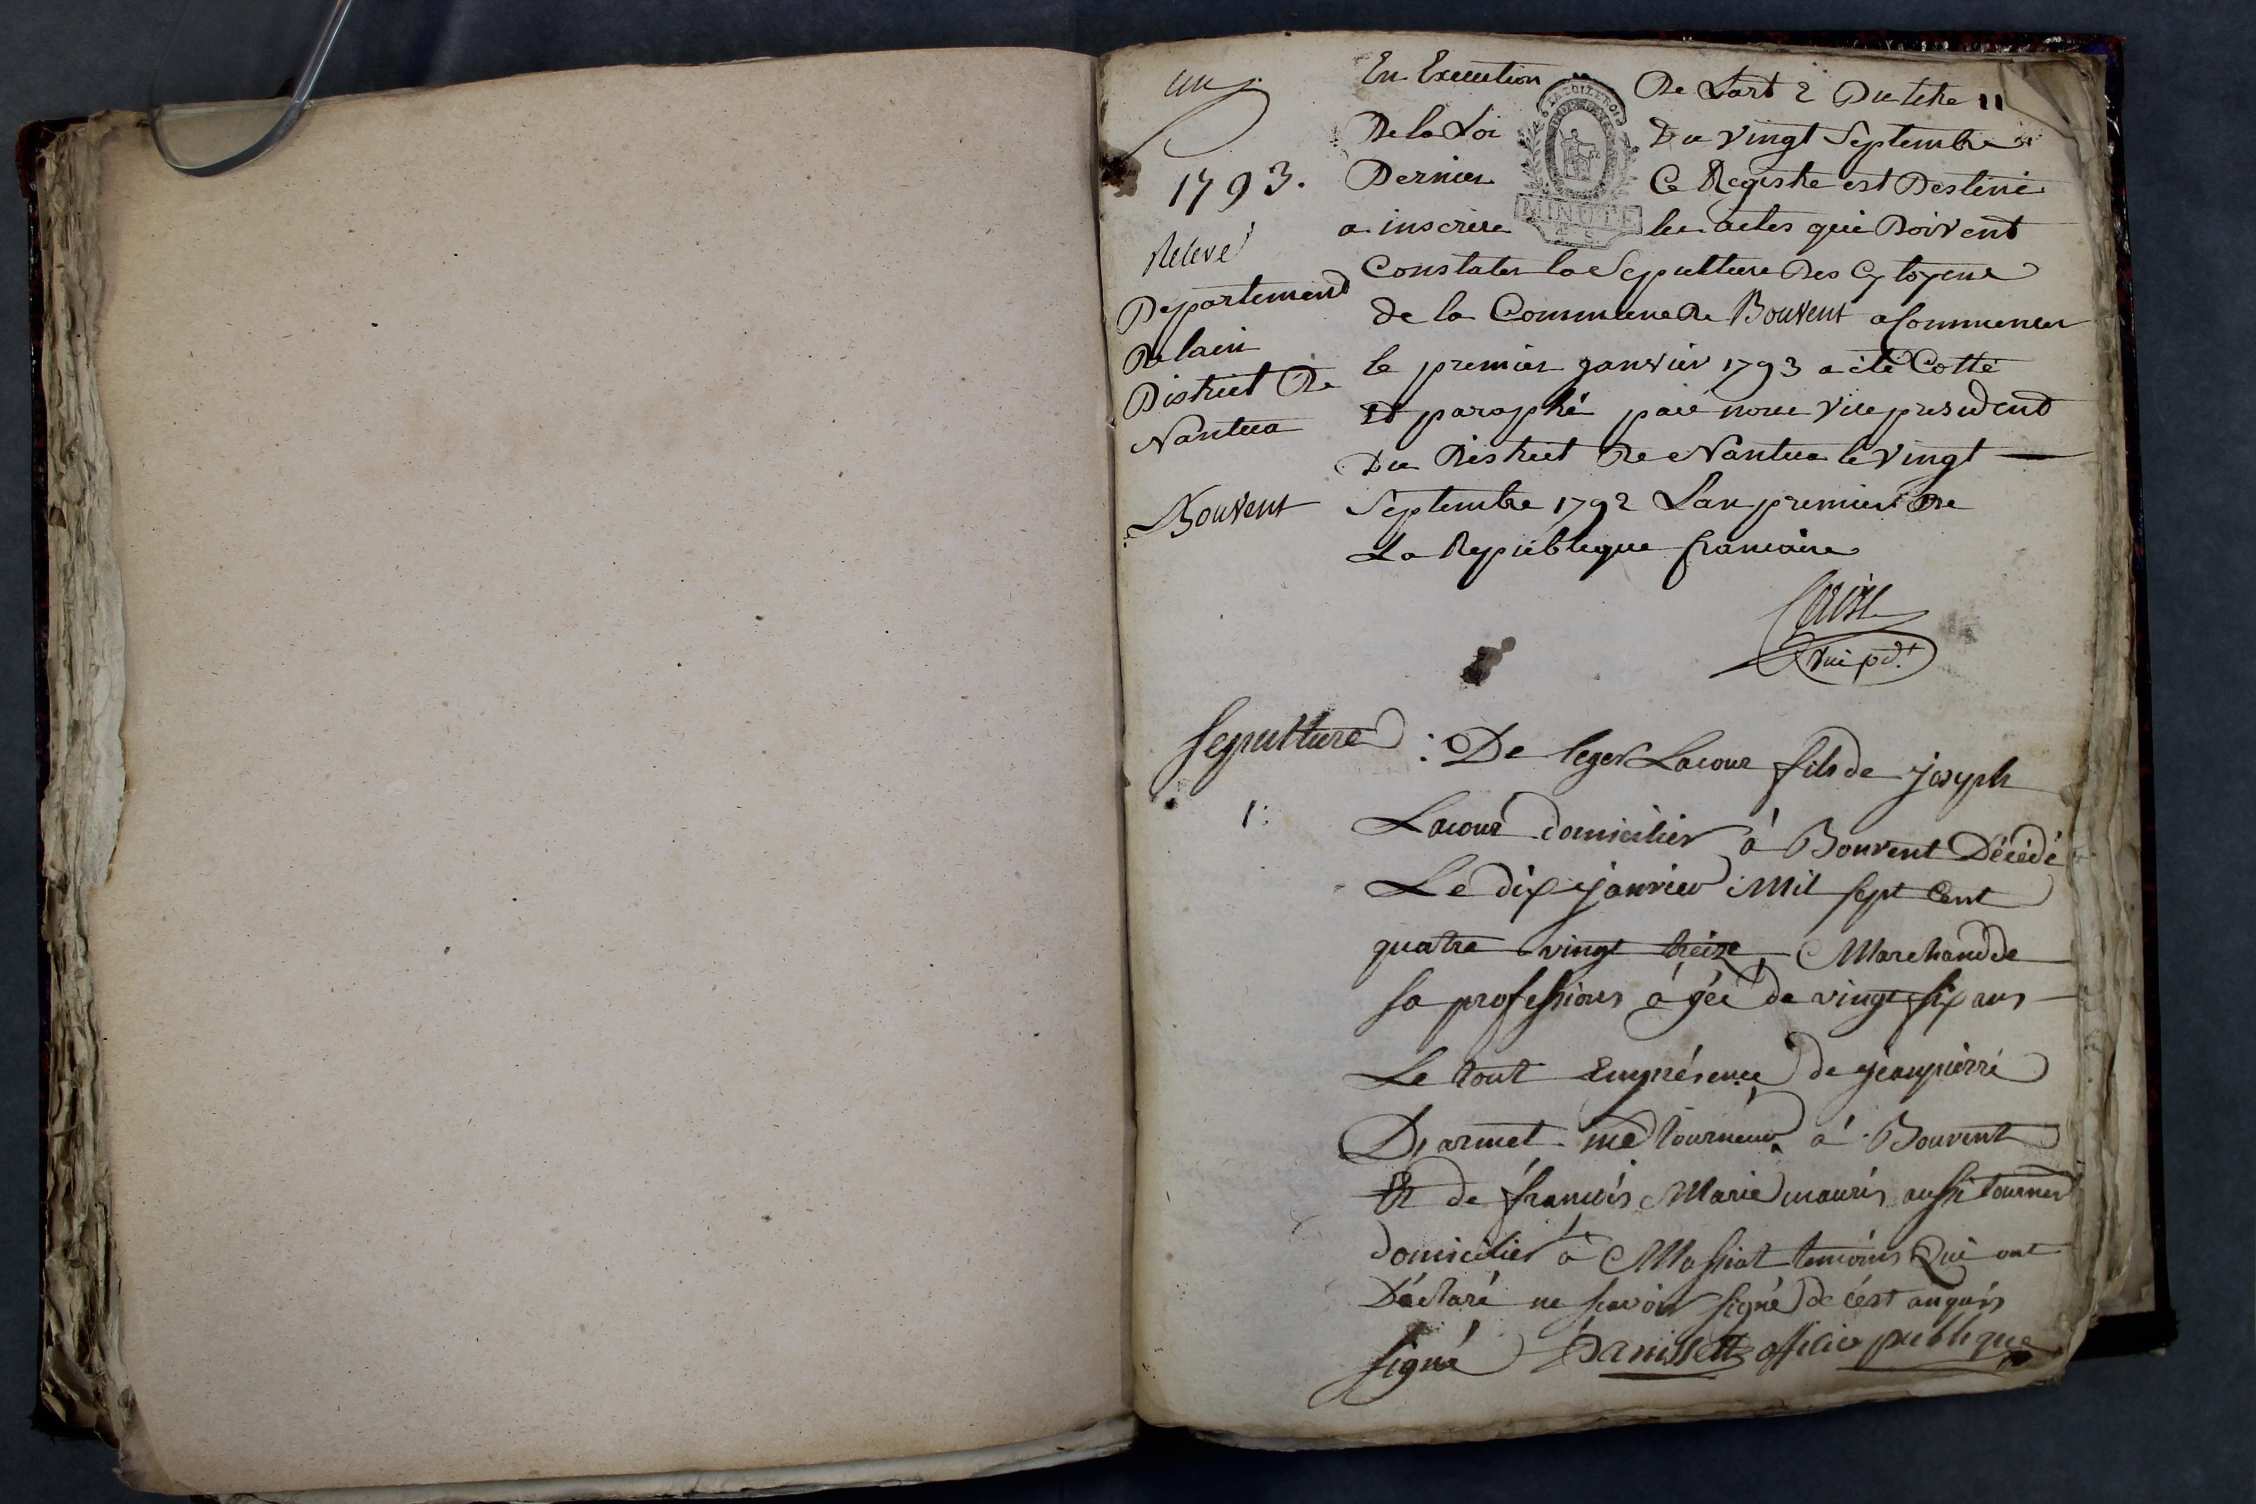 un
1793.
Relevé
Departement
De lain
District De
Nantua
Bouvent
En Execution De Lart 2 Du titre 11
De la Loi Du vingt Septembre
Dernier Ce Registre est Destiné
a inscrire les actes qui Doivent
Constater la Sepulture Des Cytoyens
de la Commune De Bouvent a Commencer
le premier janvier 1793 a été Cotté
Et paraphé par nous Vice president
Du District De Nantua le Vingt
Septembre 1792 Lan premier De
La Republique francaise
vice pdt
LA LOI LE ROI
MINUTE
4 S
Sepulture
1:
: De leger Lacour fils de joseph
Lacour domicilier à Bouvent Décédé
Le dix janvier Mil sept Cent
quatre vingt treize Marchand de
sa profession ágée de vingt six ans
Le tout Enprésence de jeanpierre
Darmet me tourneur á Bouvent
Et de francois Marie mauris aussi tourneur
domicilier à Massiat temoins Qui ont
Déclaré ne scavoir signé de cést anquis
signé Danisset officier publique